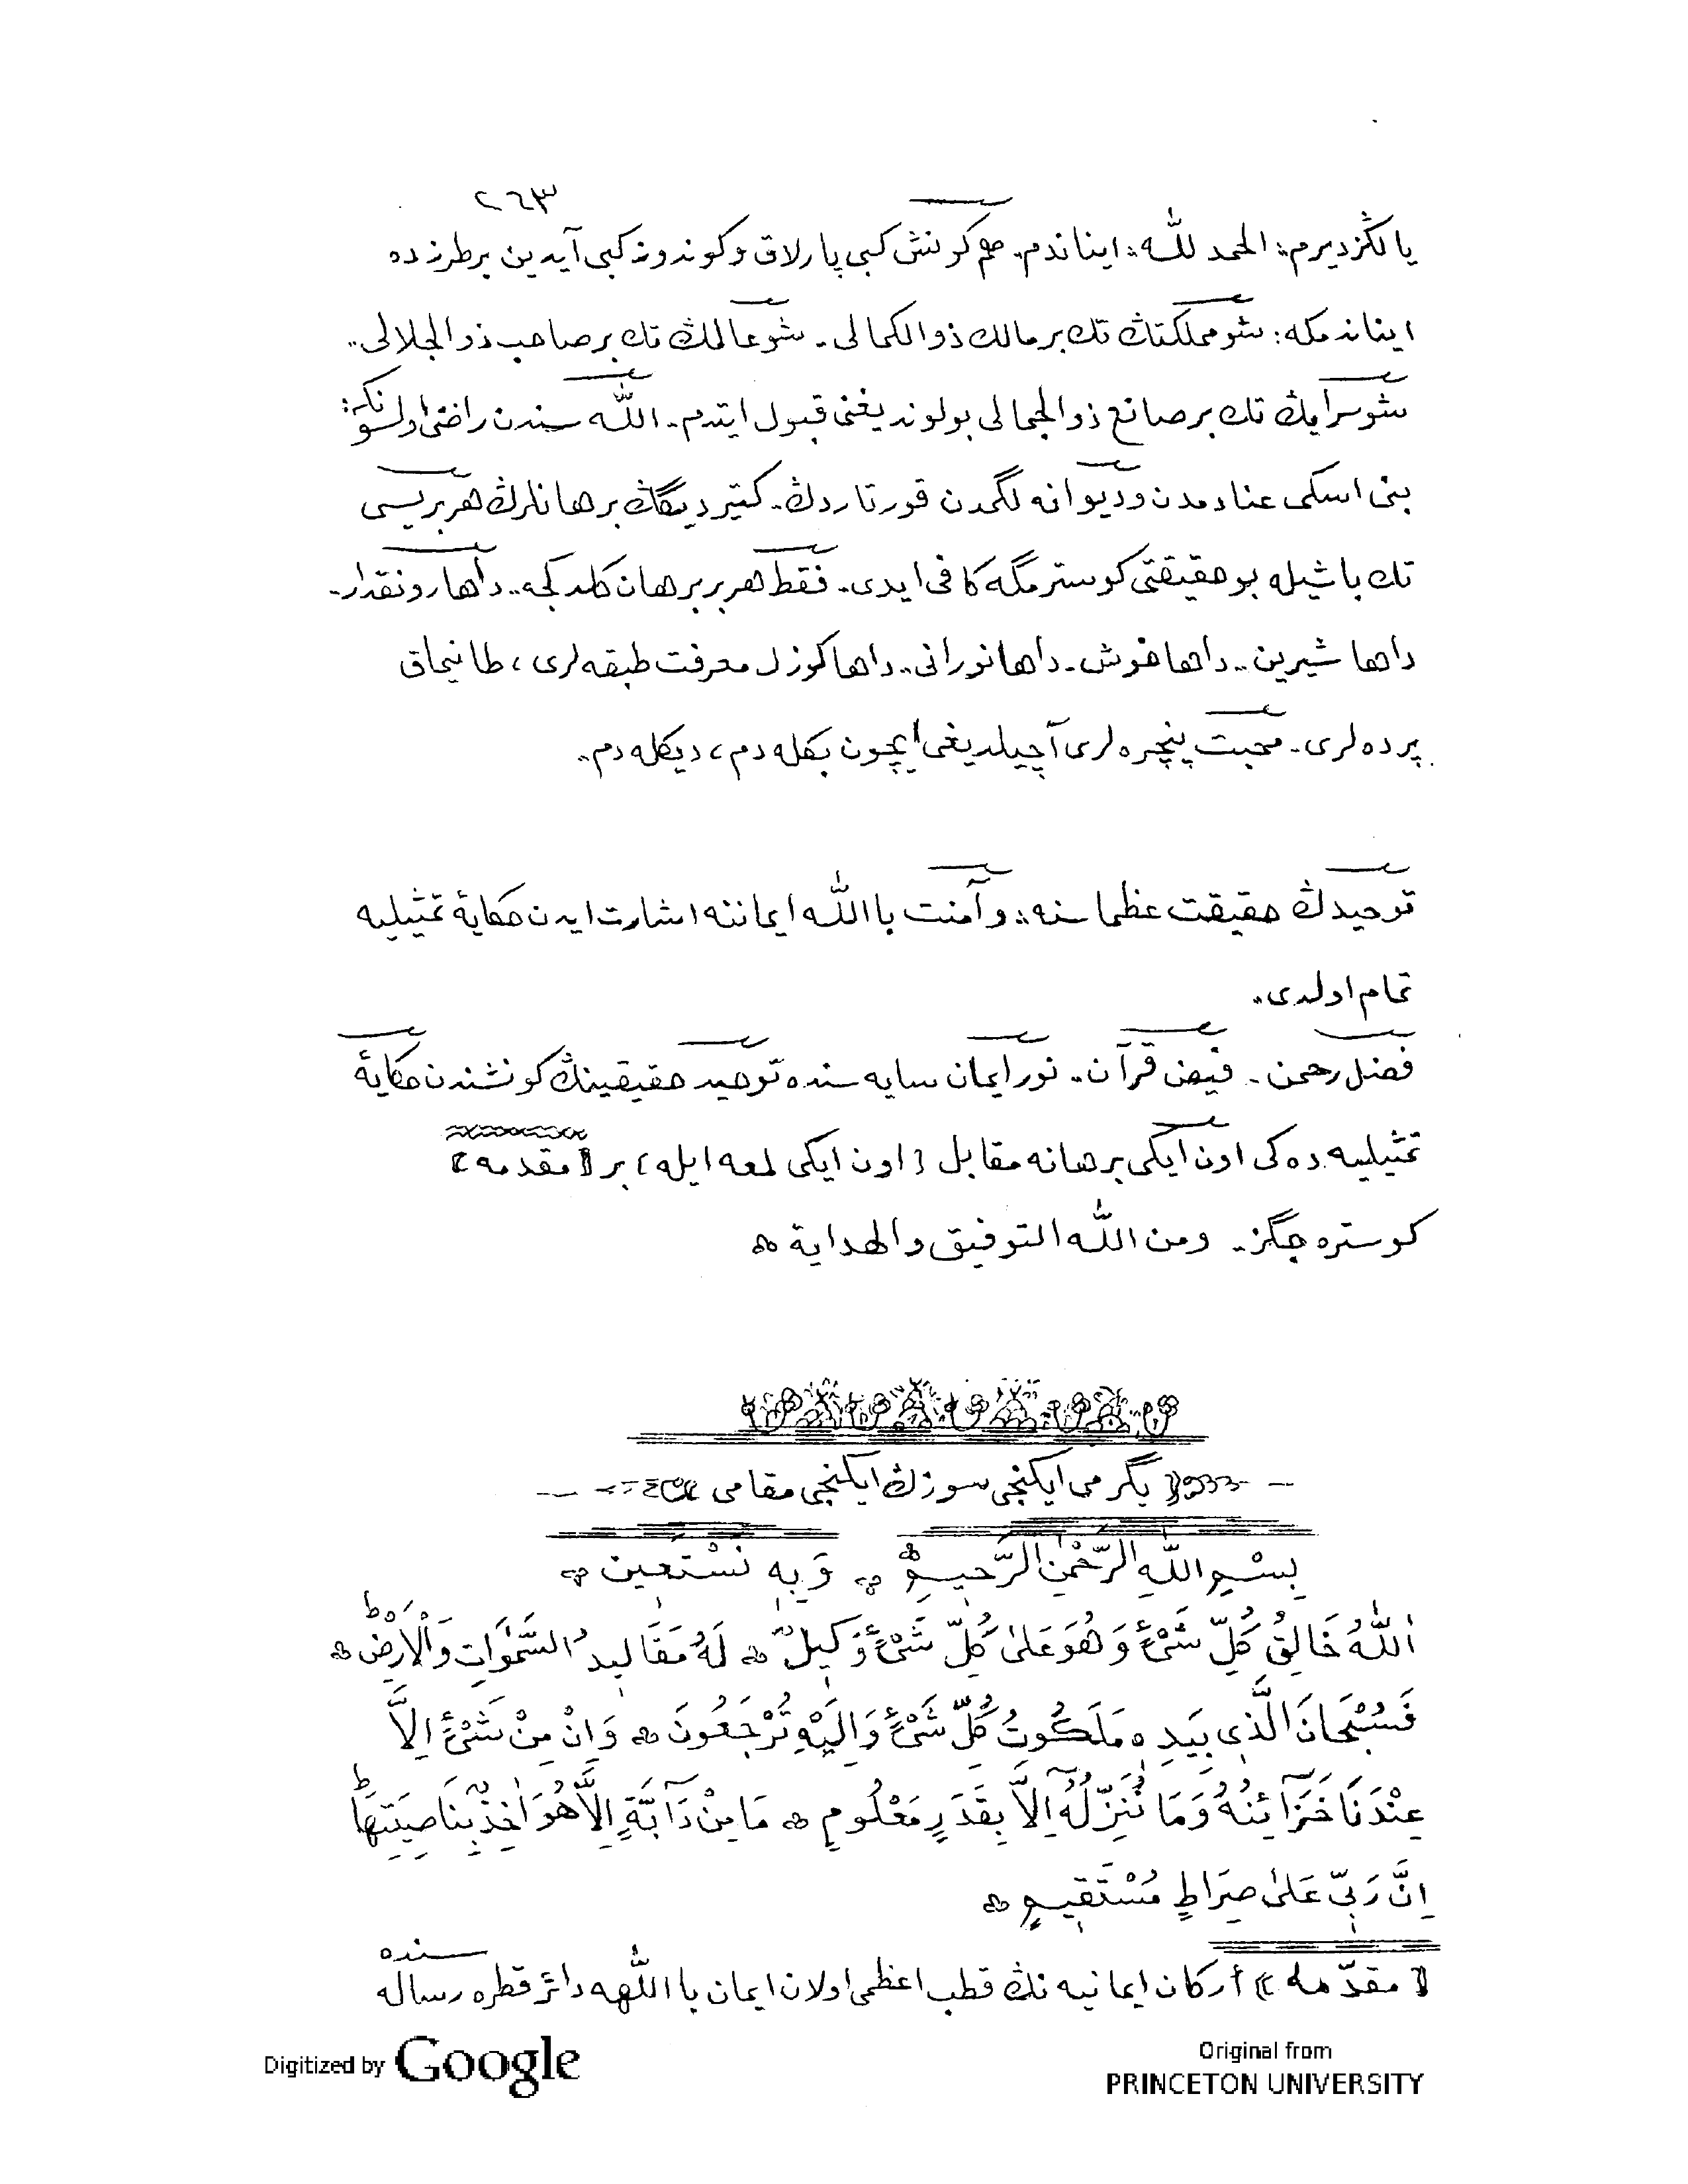 ٢٦٣
يالڭز ديرم: الحمد لله: ايناندم. هم كونش كبى پارلاق وكوندوز كبى آيدين بر طرزده
ايناندمكه: شو مملكتڭ تك بر مالك ذوالكمالى. شو عالمڭ تك بر صاحب ذوالجلالى..
شو سرايڭ تك بر صانع ذوالجمالى بولونديغنى قبول ايتدم. الله سندن راضى اولسونكه:
بنى اسكى عنادمدن و ديوانه لگمدن قورتاردڭ. كتيرديگڭ برهانلرڭ هر بريسى
تك باشيله بو حقيقتى كوسترمگه كافى ايدى. فقط هر بر برهان كلدكجه.. داها رونقدار.
داها شيرين.. داها خوش. داها نورانى.. داها كوزل معرفت طبقه لرى، طانيماق
پرده لرى. محبت پنچره لرى آچيلديغى ايچون بكله دم، ديكله دم..
توحيدڭ حقيقت عظماسنه: و آمنت باالله ايماننه اشارت ايدن حكايۀ تمثيليه
تمام اولدى.
فضل رحمن. فيض قرآن. نور ايمان سايه سنده توحيد حقيقينڭ كونشندن حكايۀ
تمثيليه ده كى اون ايكى برهانه مقابل (اون ايكى لمعه ايله) بر (مقدمه)
كوستره جگز. ومن الله التوفيق والهداية
يگرمى ايكنجى سوزڭ ايكنجى مقامى
بِسْمِ اللّٰهِ الرَّحْمٰنِ الرَّحِيمِ وَ بِهِ نَسْتَعِين
اَللّٰهُ خَالِقُ كُلِّ شَىْءٍ وَ هُوَ عَلٰى كُلِّ شَىْءٍ وَكِيلٌ لَهُ مَقَالِيدُ السَّمٰوَاتِ وَالْاَرْضِ ط
فَسُبْحَانَ الَّذِى بِيَدِهِ مَلَكُوتُ كُلِّ شَىْءٍ وَاِلَيْهِ تُرْجَعُونَ وَاِنْ مِنْ شَىْءٍ اِلاَّ
عِنْدَنَا خَزَآئِنُهُ وَمَا نُنَزِّلُهُٓ اِلاَّ بِقَدَرٍ مَعْلُومٍ مَا مِنْ دَآبَّةٍ اِلاَّ هُوَ اٰخِذٌ بِنَاصِيَتِهَا ط
اِنَّ رَبِّى عَلٰى صِرَاطٍ مُسْتَقِيمٍ
(مقدّمه) أركان ايمانيه نڭ قطب اعظمى اولان ايمان باالله دائر قطره رساله سنده
Digitized by Google
Original from
PRINCETON UNIVERSITY